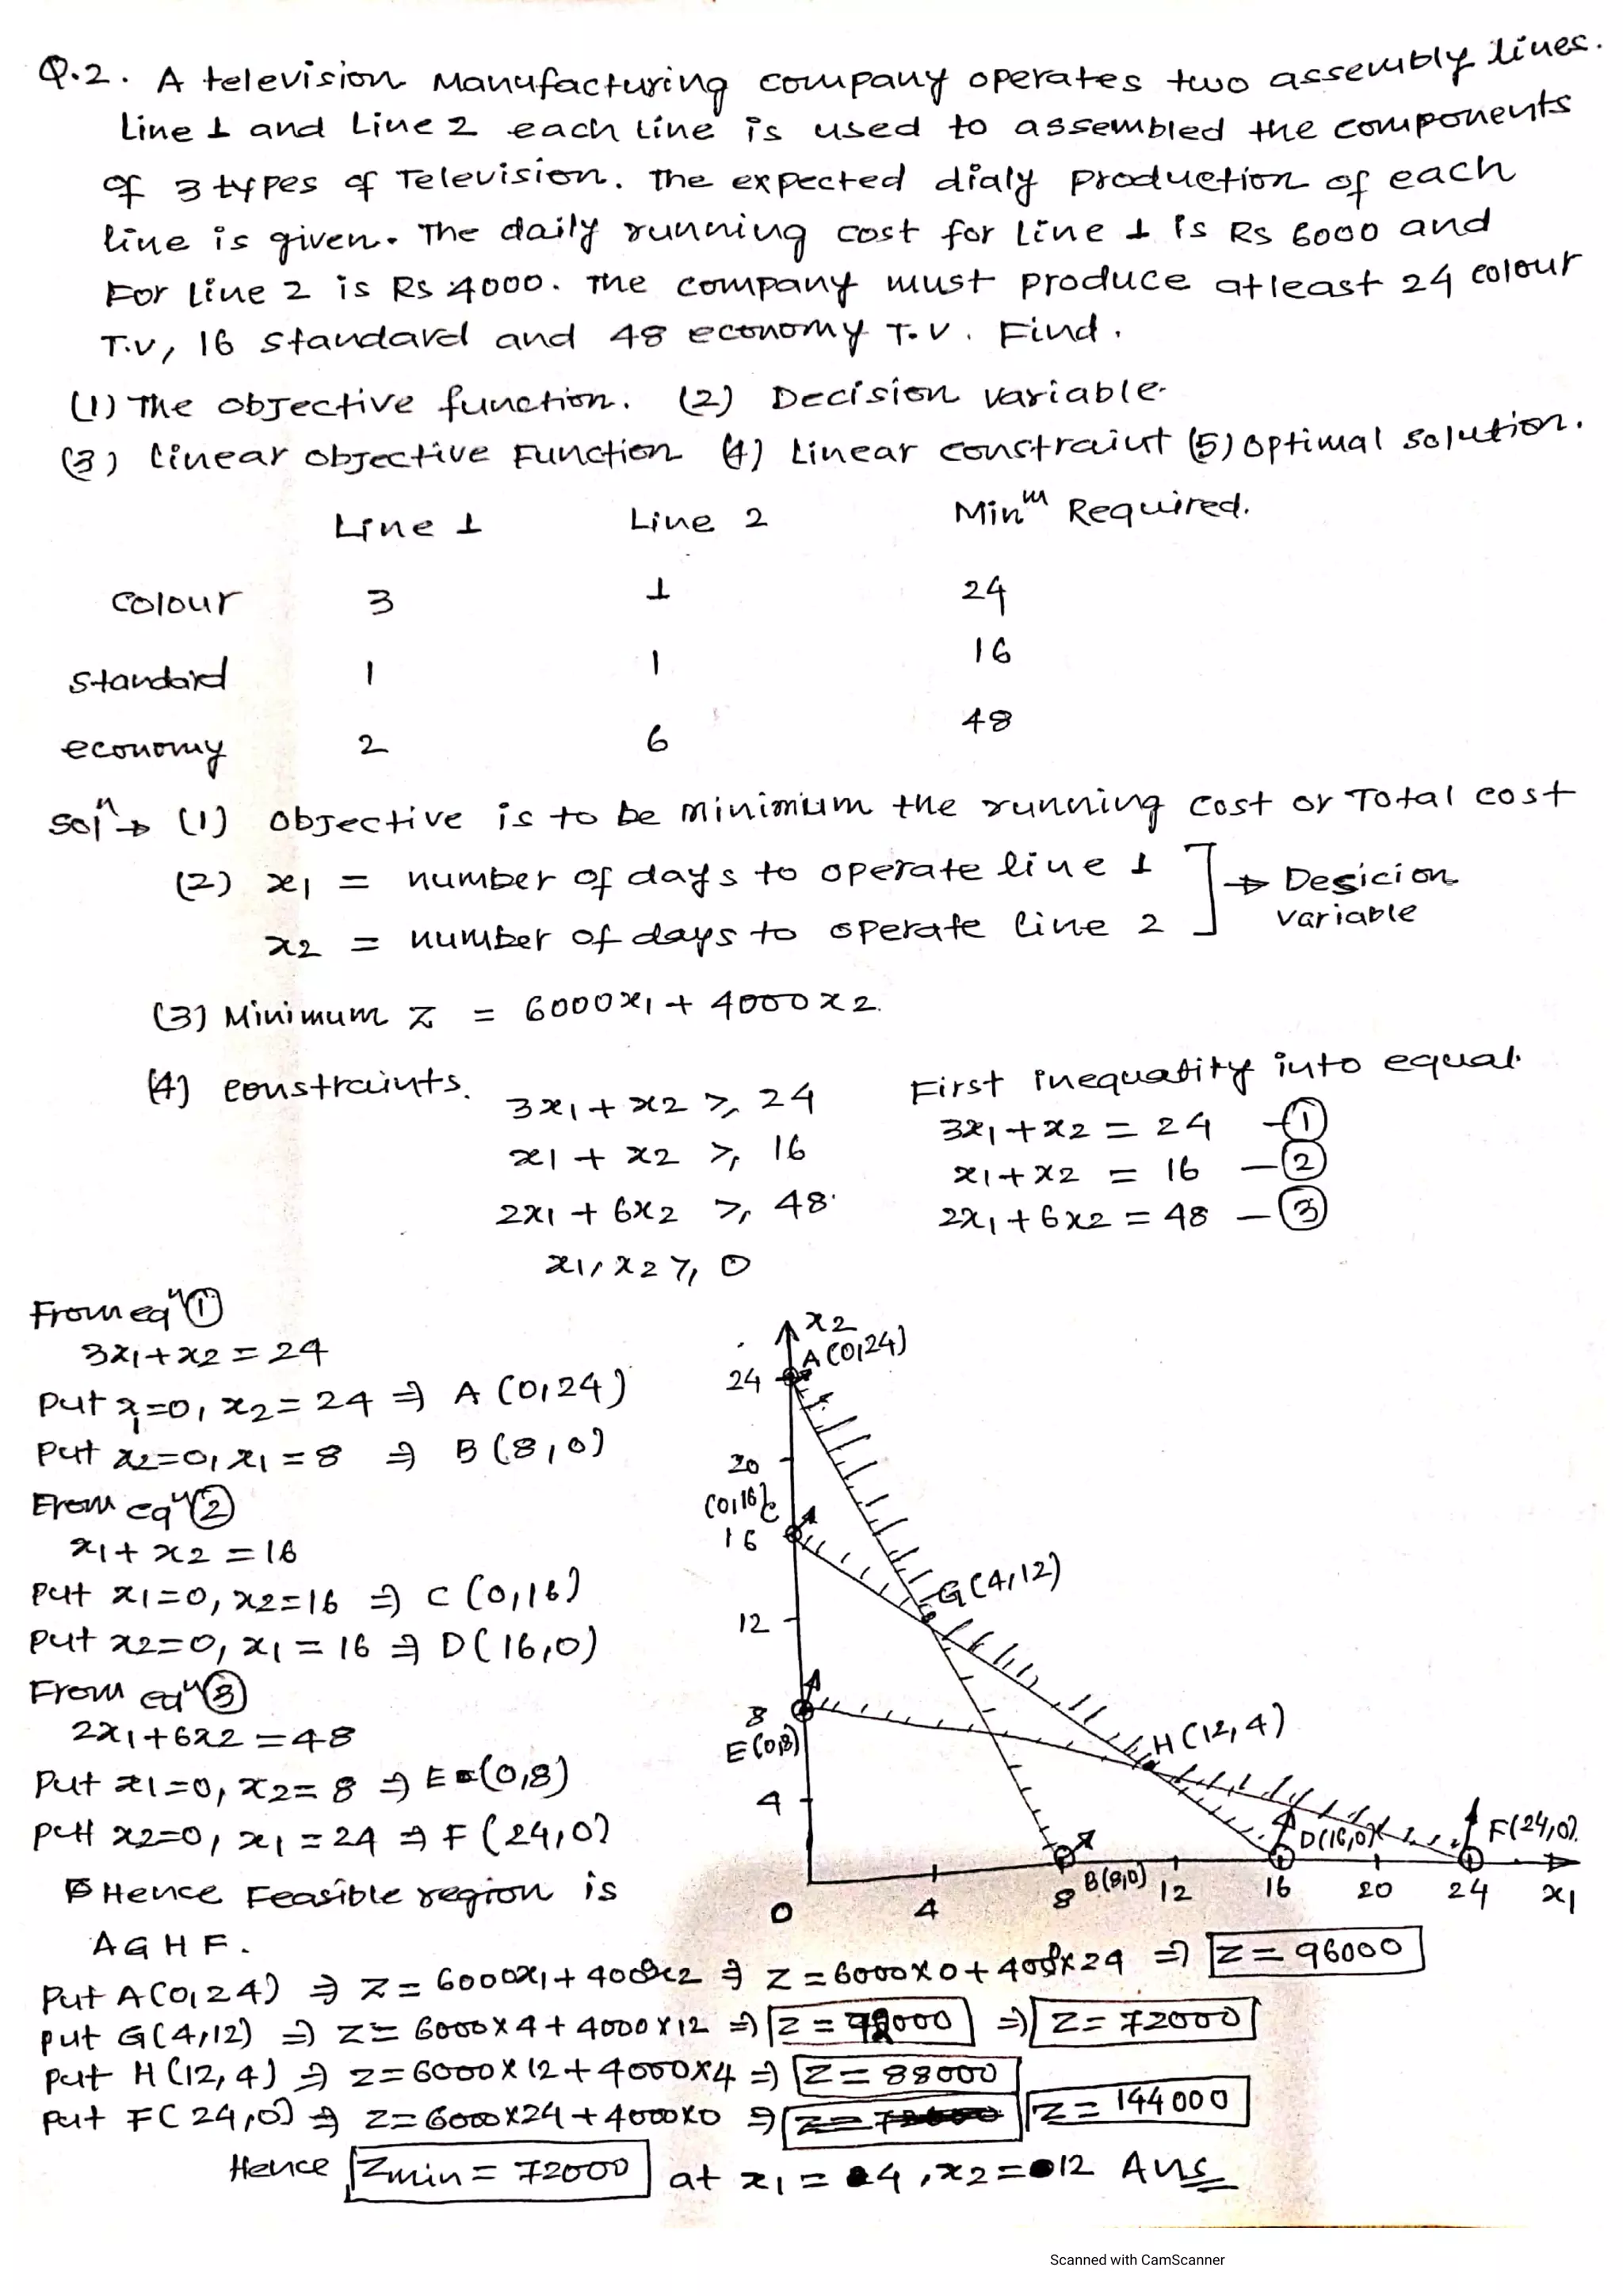 Q.2. A television Manufacturing company operates two assembly lines.
Line 1 and Line 2 each line is used to assembled the components
of 3 types of Television. The expected dialy production of each
line is given. The daily running cost for Line 1 is Rs 6000 and
For Line 2 is Rs 4000. The company must produce atleast 24 colour
T.V, 16 standard and 48 economy T.V. Find.
(1) The objective function. (2) Decision variable.
(3) Linear objective Function (4) Linear constraint (5) optimal solution.
Line 1 Line 2 Minᵐ Required.
colour 3 1 24
standard 1 1 16
economy 2 6 48
solⁿ → (1) objective is to be minimium the running cost or Total cost
(2) x1 = number of days to operate line 1 ] → Desicion
x2 = number of days to operate line 2 variable
(3) Minimum Z = 6000x1 + 4000x2.
(4) constraints.
3x1 + x2 ≥ 24
x1 + x2 ≥ 16
2x1 + 6x2 ≥ 48.
x1, x2 ≥ 0
First inequality into equal.
3x1 + x2 = 24 — ①
x1 + x2 = 16 — ②
2x1 + 6x2 = 48 — ③
From eqⁿ ①
3x1 + x2 = 24
Put x1=0, x2 = 24 ⇒ A (0,24)
Put x2=0, x1 = 8 ⇒ B (8,0)
From eqⁿ ②
x1 + x2 = 16
Put x1=0, x2=16 ⇒ C (0,16)
Put x2=0, x1 = 16 ⇒ D (16,0)
From eqⁿ ③
2x1 + 6x2 = 48
Put x1=0, x2= 8 ⇒ E = (0,8)
Put x2=0, x1 = 24 ⇒ F (24,0)
Hence Feasible region is
AGHF.
x2
A (0,24)
24
20
(0,16) C
16
G(4,12)
12
8
E(0,8)
H(12,4)
4
D(16,0)
F(24,0).
B(8,0)
0 4 8 12 16 20 24 x1
Put A(0,24) ⇒ Z = 6000x1 + 4000x2 ⇒ Z = 6000x0 + 4000x24 ⇒ Z = 96000
put G(4,12) ⇒ Z = 6000 x 4 + 4000 x 12 ⇒ Z = 72000 ⇒ Z = 72000
put H(12,4) ⇒ Z = 6000 x 12 + 4000x4 ⇒ Z = 88000
Put F(24,0) ⇒ Z = 6000x24 + 4000x0 ⇒ Z = 144000
Hence Zmin = 72000 at x1 = 4, x2 = 12 Ans
Scanned with CamScanner